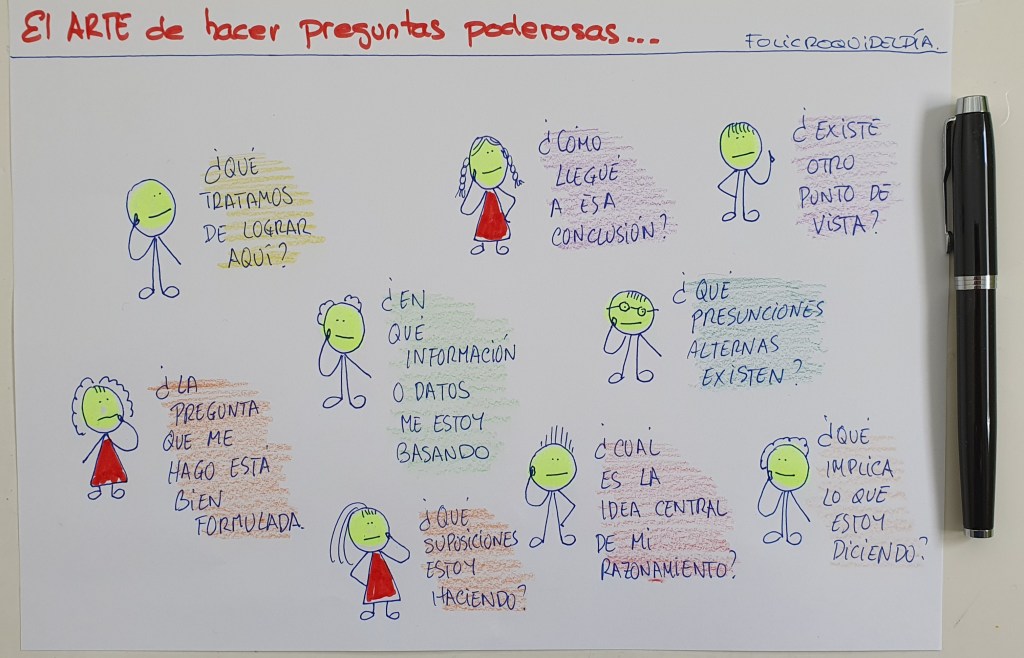 El ARTE de hacer preguntas poderosas...
FOLICROQUIDELDÍA.
¿QUÉ
TRATAMOS
DE LOGRAR
AQUÍ?
¿CÓMO
LLEGUÉ
A ESA
CONCLUSIÓN?
¿EXISTE
OTRO
PUNTO DE
VISTA?
¿EN
QUÉ
INFORMACIÓN
O DATOS
ME ESTOY
BASANDO
¿QUÉ
PRESUNCIONES
ALTERNAS
EXISTEN?
¿LA
PREGUNTA
QUE ME
HAGO ESTÁ
BIEN
FORMULADA.
¿QUÉ
SUPOSICIONES
ESTOY
HACIENDO?
¿CUÁL
ES LA
IDEA CENTRAL
DE MI
RAZONAMIENTO?
¿QUÉ
IMPLICA
LO QUE
ESTOY
DICIENDO?